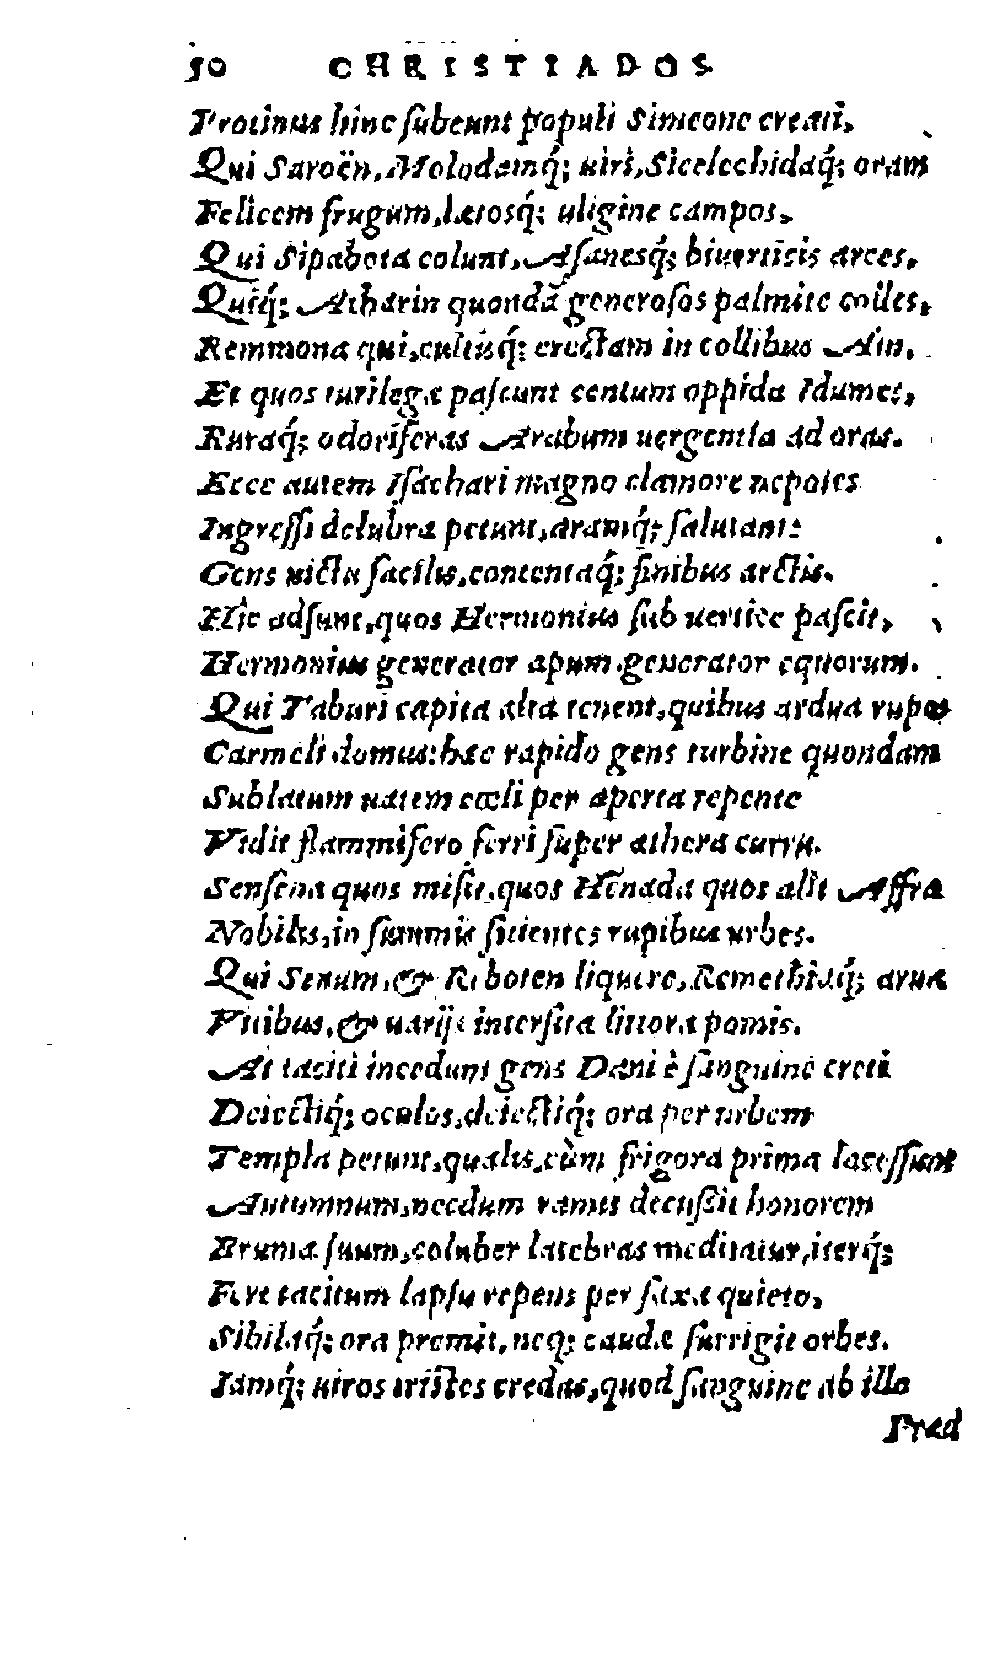 50 CHRISTIADOS
Protinus hinc ſubeunt populi Simeone creati,
Qui Saroën, Molodamq́; uiri, Sicelechidaq́; oram
Felicem frugum, lætosq́; uligine campos,
Qui Sipabota colunt, Aſanesq́; biuerticis arces,
Quiq́; Atharin quondā generoſos palmite colles,
Remmona qui, cultisq́; erectam in collibus Ain,
Et quos turilegæ paſcunt centum oppida Idumes,
Ruraq́; odoriferas Arabum uergentia ad oras.
Ecce autem Iſachari magno clamore nepotes
Ingreſſi delubra petunt, aramq́; ſalutant:
Gens uictu facilis, contentaq́; finibus arctis.
Hîc adſunt, quos Hermonius ſub uertice paſcit,
Hermonius generator apum, generator equorum.
Qui Taburi capita alta tenent, quibus ardua rupes
Carmeli domus: hæc rapido gens turbine quondam
Sublatum uatem cœli per aperta repente
Vidit flammifero ferri ſuper æthera curru.
Senſena quos miſit, quos Hēnada quos alit Affra
Nobilis, in ſummis ſitientes rupibus urbes.
Qui Senum, & Riboten liquere, Remethidq́; arua
Vitibus, & uarijs interſita littora pomis.
At taciti incedunt gens Dani è ſanguine creti
Deiectiq́; oculos, deiectiq́; ora per urbem
Templa petunt, qualis, cùm frigora prima laceſſunt
Autumnum, necdum ramis decuſſit honorem
Bruma ſuum, coluber latebras meditatur, iterq́;
Fert tacitum lapſu repens per ſaxa quieto,
Sibilaq́; ora premit, neq; caudæ ſurrigit orbes.
Iamq́; uiros triſtes credas, quod ſanguine ab illo
Præd